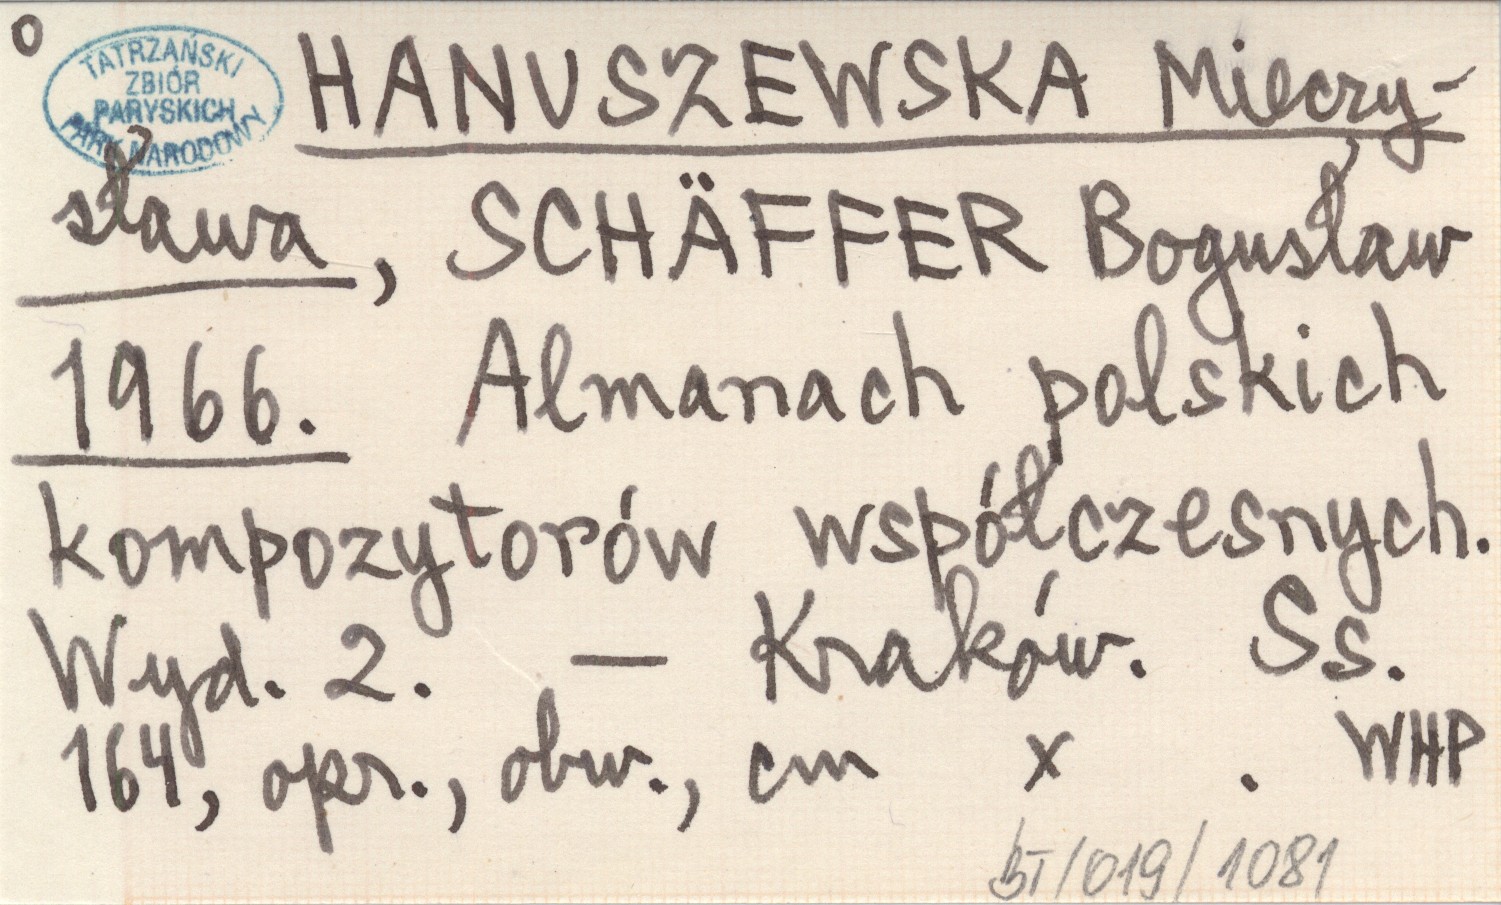 O
TATRZAŃSKI
ZBIÓR
PARYSKICH
PARK NARODOWY
HANUSZEWSKA Mieczy-
sława, SCHÄFFER Bogusław
1966. Almanach polskich
kompozytorów współczesnych.
Wyd. 2. — Kraków. Ss.
164, opr., obw., cm x . WHP
BT/019/1081